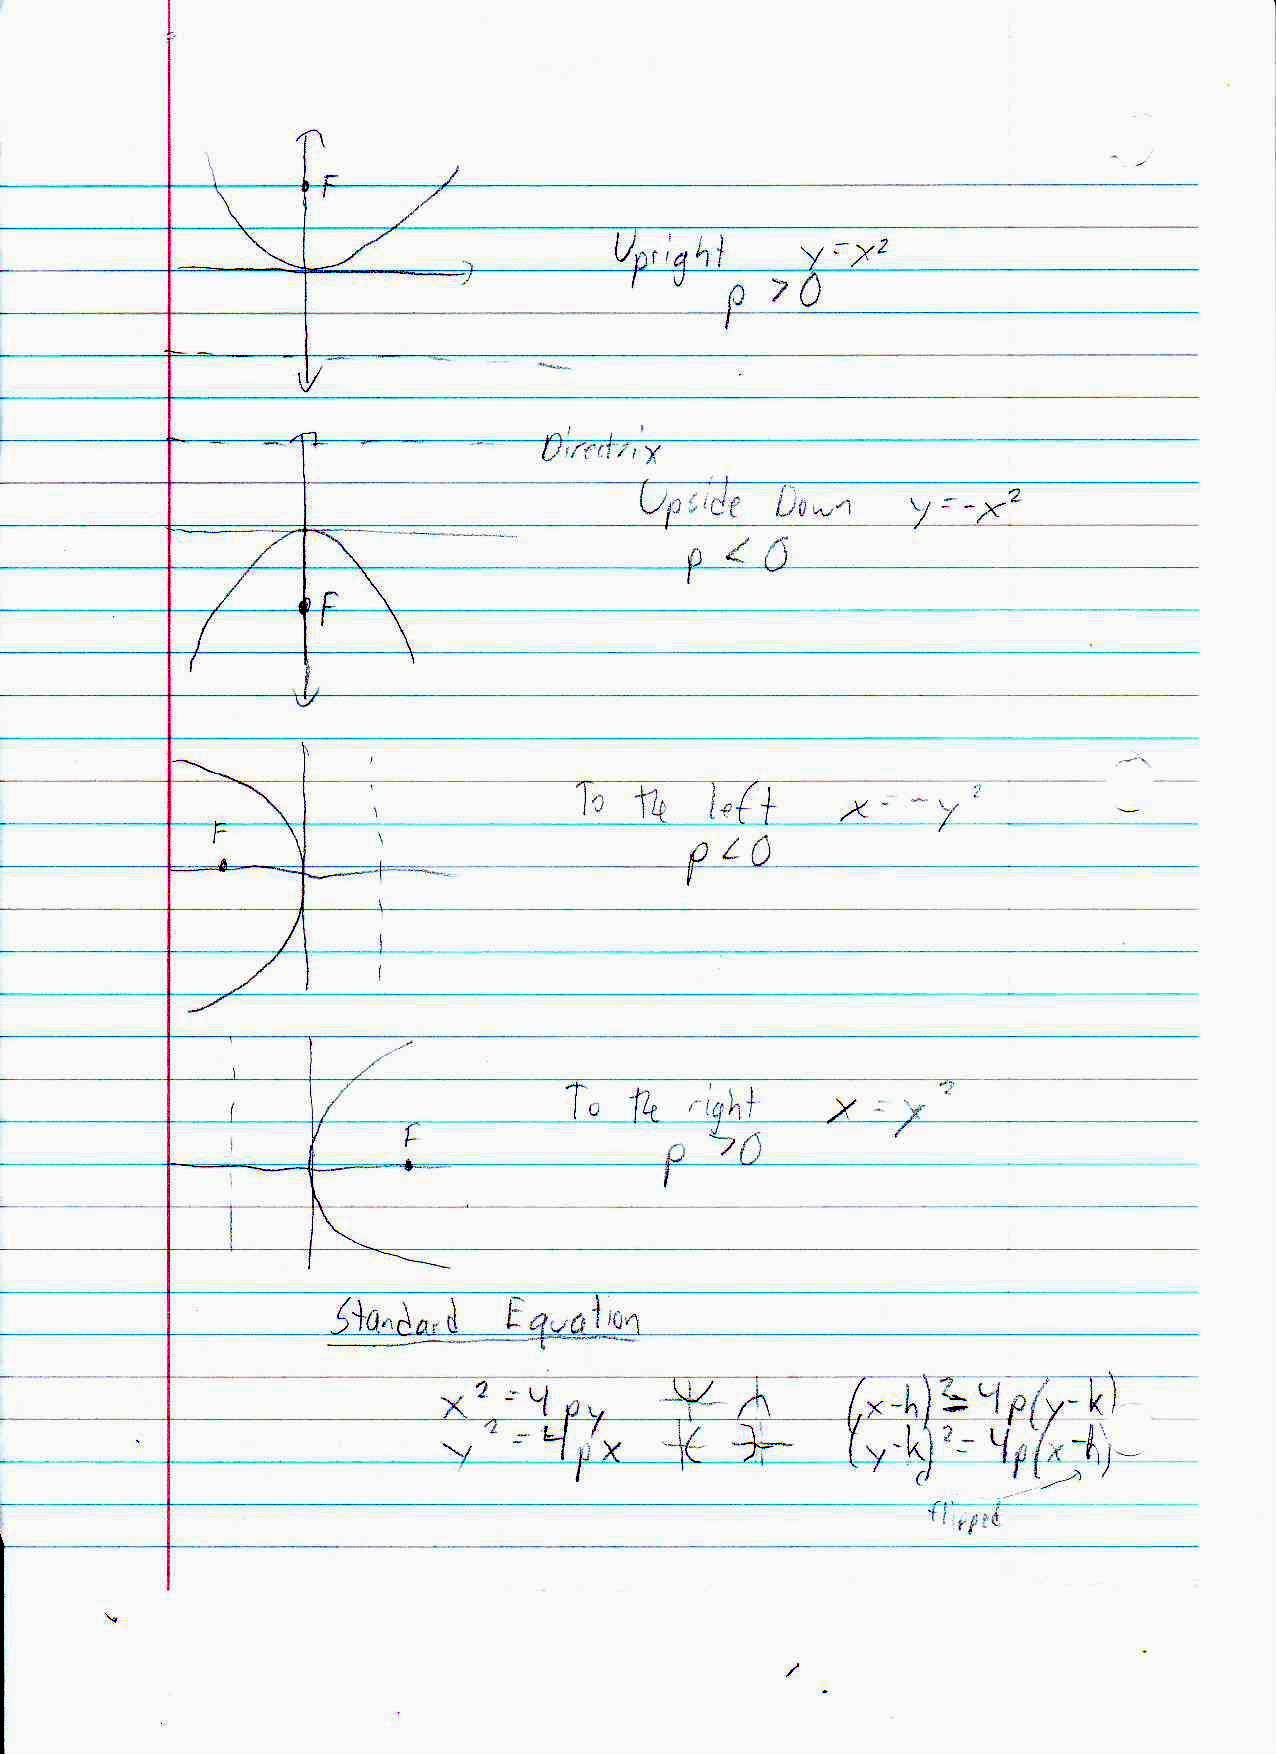 F
Upright y=x²
p >0
Directrix
Upside Down y=-x²
p < 0
F
To the left x=-y²
F
p<0
To the right x=y²
F
p >0
Standard Equation
x²=4py (x-h)²=4p(y-k)
y²=4px (y-k)²=4p(x-h)
flipped